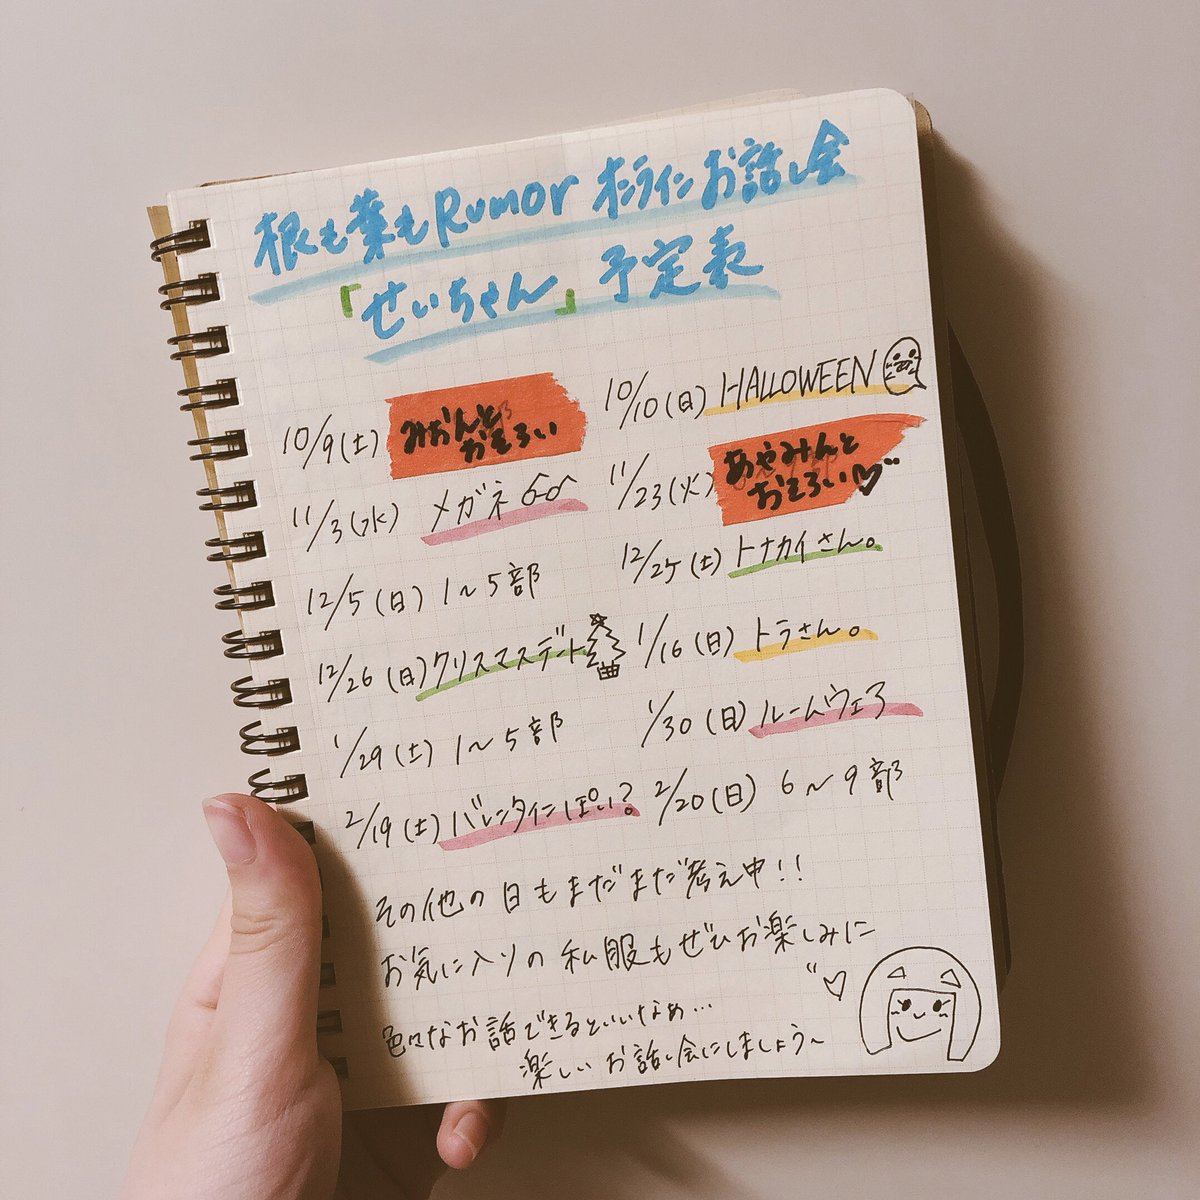 根も葉もRumor オンラインお話し会
「せいちゃん」予定表
10/9(土) みおんとおそろい
10/10(日) HALLOWEEN
11/3(水) メガネ
11/23(火) あやみんとおそろい♡
12/5(日) 1～5部
12/25(土) トナカイさん。
12/26(日) クリスマスデート
1/16(日) トラさん。
1/29(土) 1～5部
1/30(日) ルームウェア
2/19(土) バレンタインぽい?
2/20(日) 6～9部
その他の日もまだまだ考え中!!
お気に入りの私服もぜひお楽しみに
色々なお話できるといいなぁ…
楽しいお話し会にしましょう～